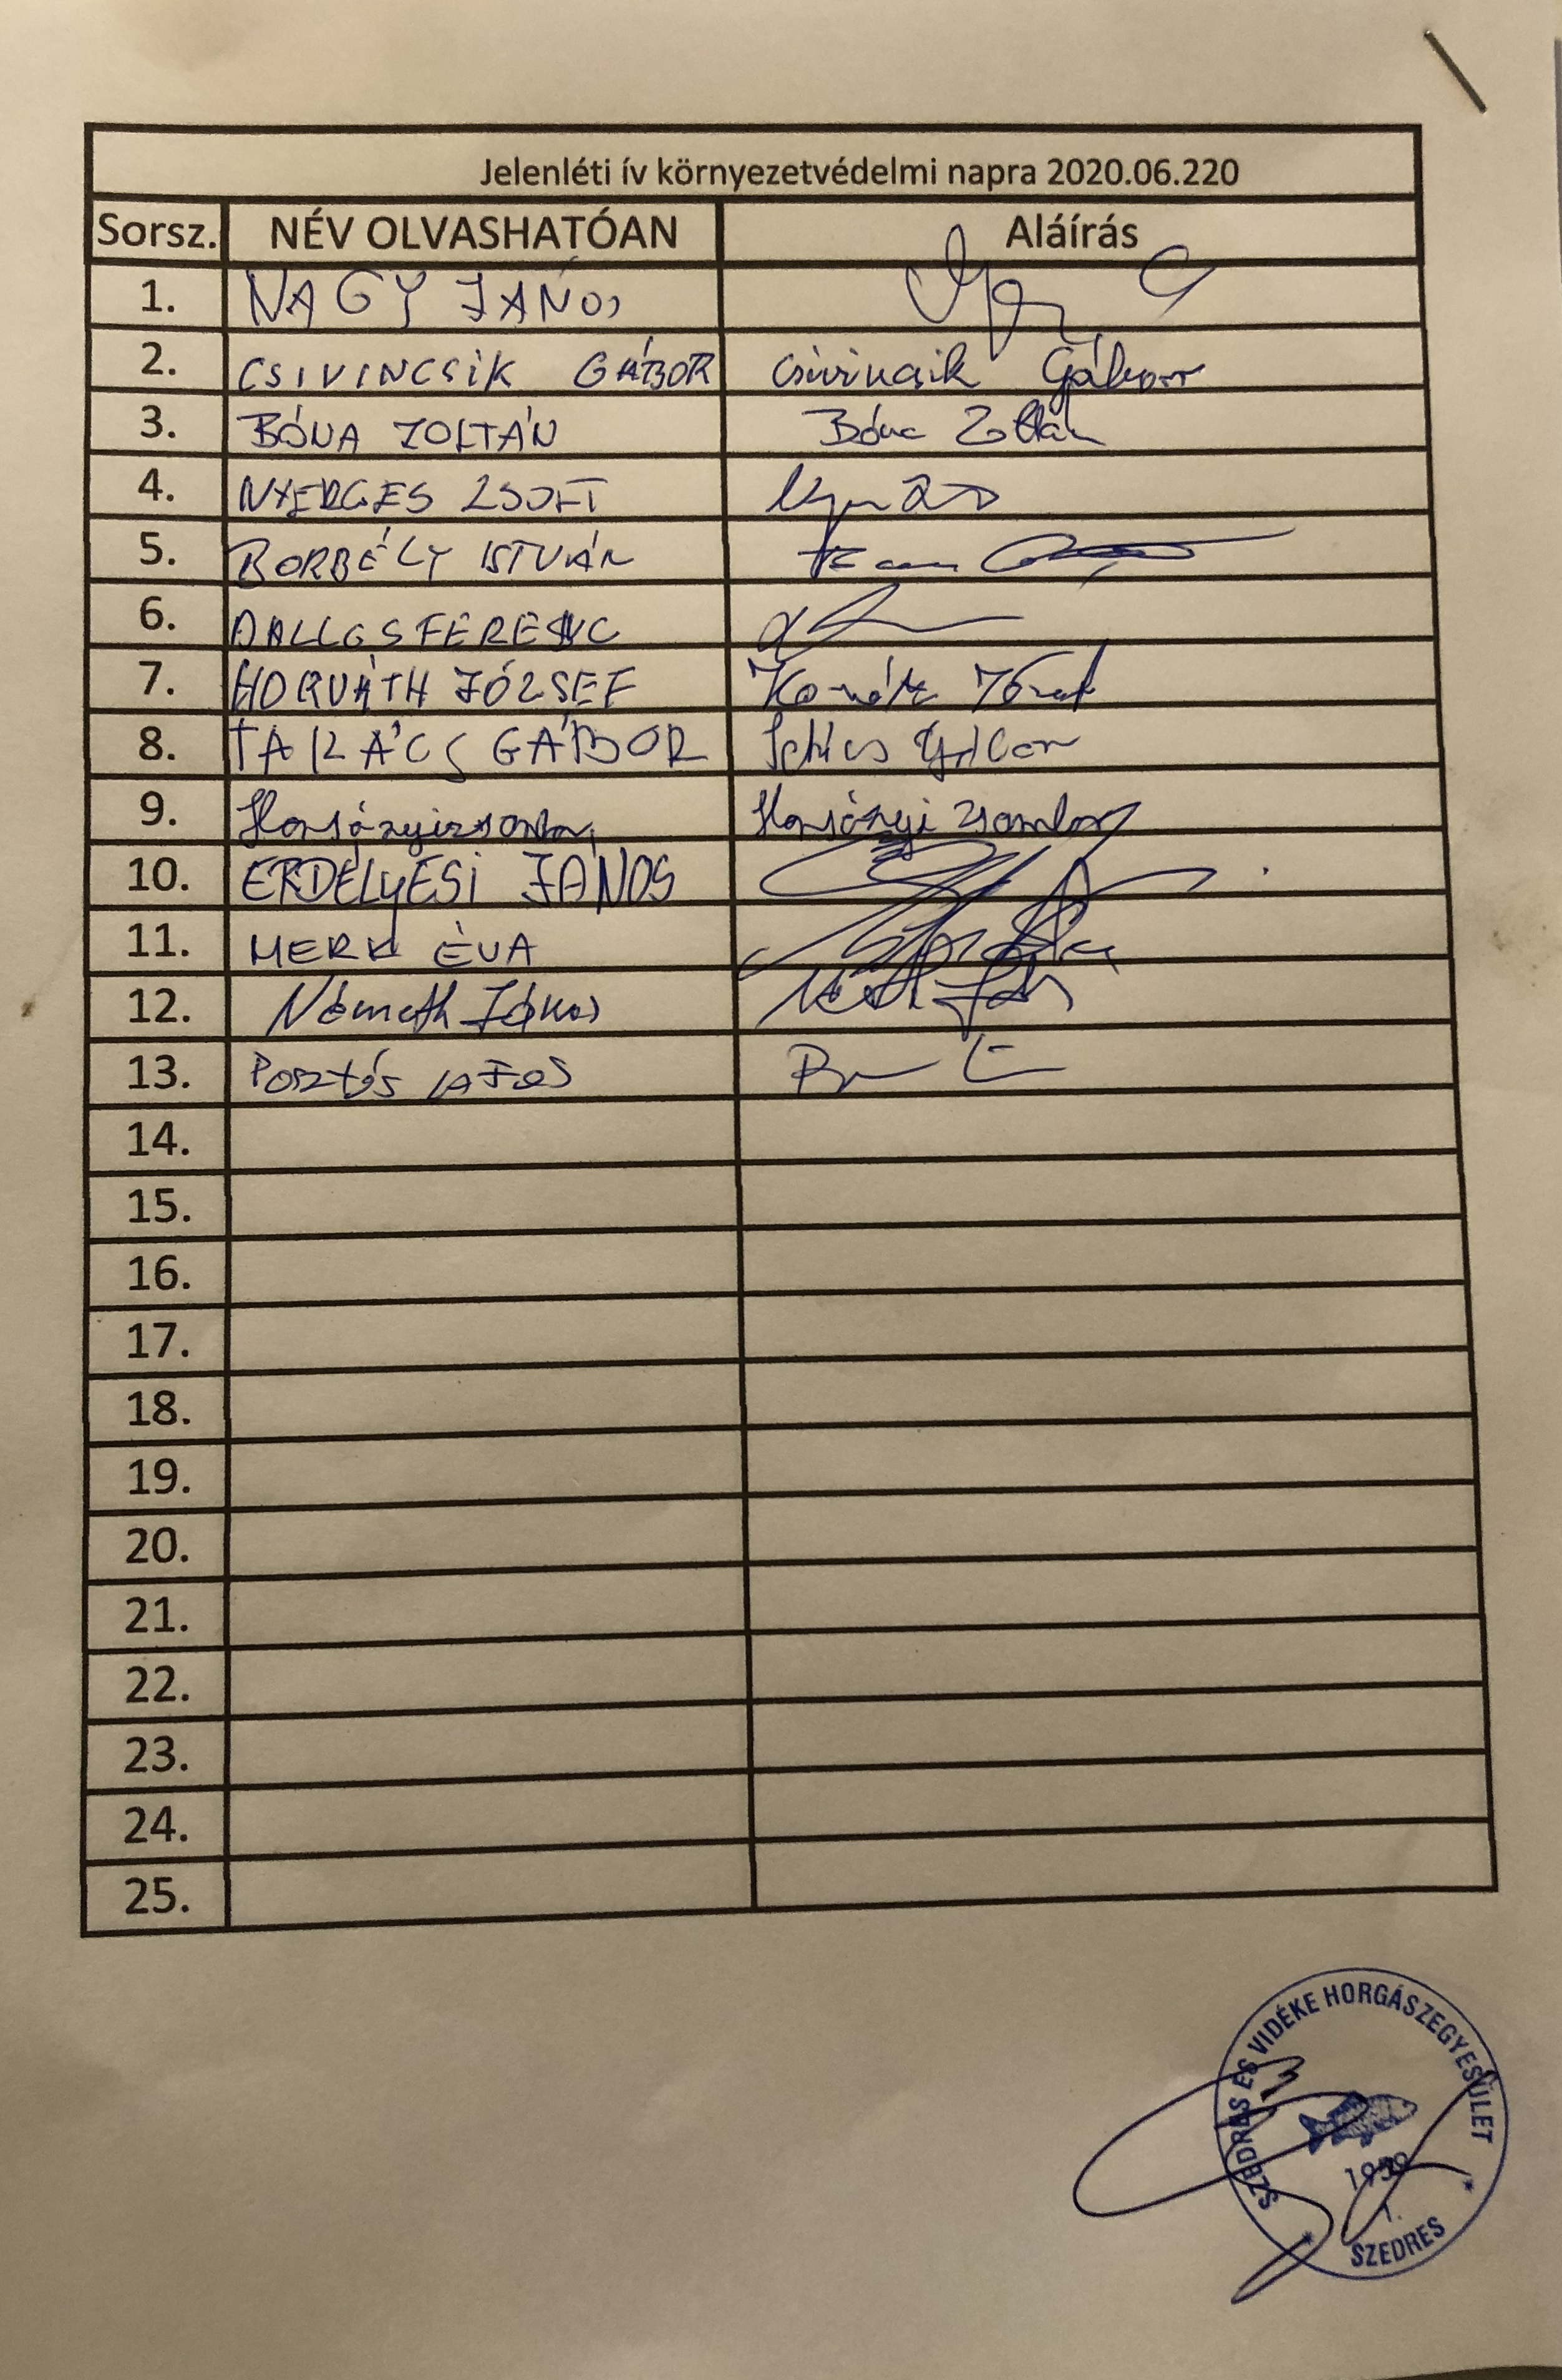 Jelenléti ív környezetvédelmi napra 2020.06.220
Sorsz. NÉV OLVASHATÓAN Aláírás
1. NAGY JÁNOS
2. CSIVINCSIK GÁBOR Csivincsik Gábor
3. BÓNA ZOLTÁN Bóna Zoltán
4. NYERGES ZSOLT
5. BORBÉLY ISTVÁN
6. DALLOS FERENC
7. HORVÁTH JÓZSEF Horváth József
8. TAKÁCS GÁBOR Takács Gábor
9. Harsányi Zsombor Harsányi Zsombor
10. ERDÉLYESI JÁNOS
11. MERK ÉVA
12. Németh János
13. POSZTÓS LAJOS
14.
15.
16.
17.
18.
19.
20.
21.
22.
23.
24.
25.
SZEDRES ÉS VIDÉKE HORGÁSZEGYESÜLET
1959
1.
SZEDRES